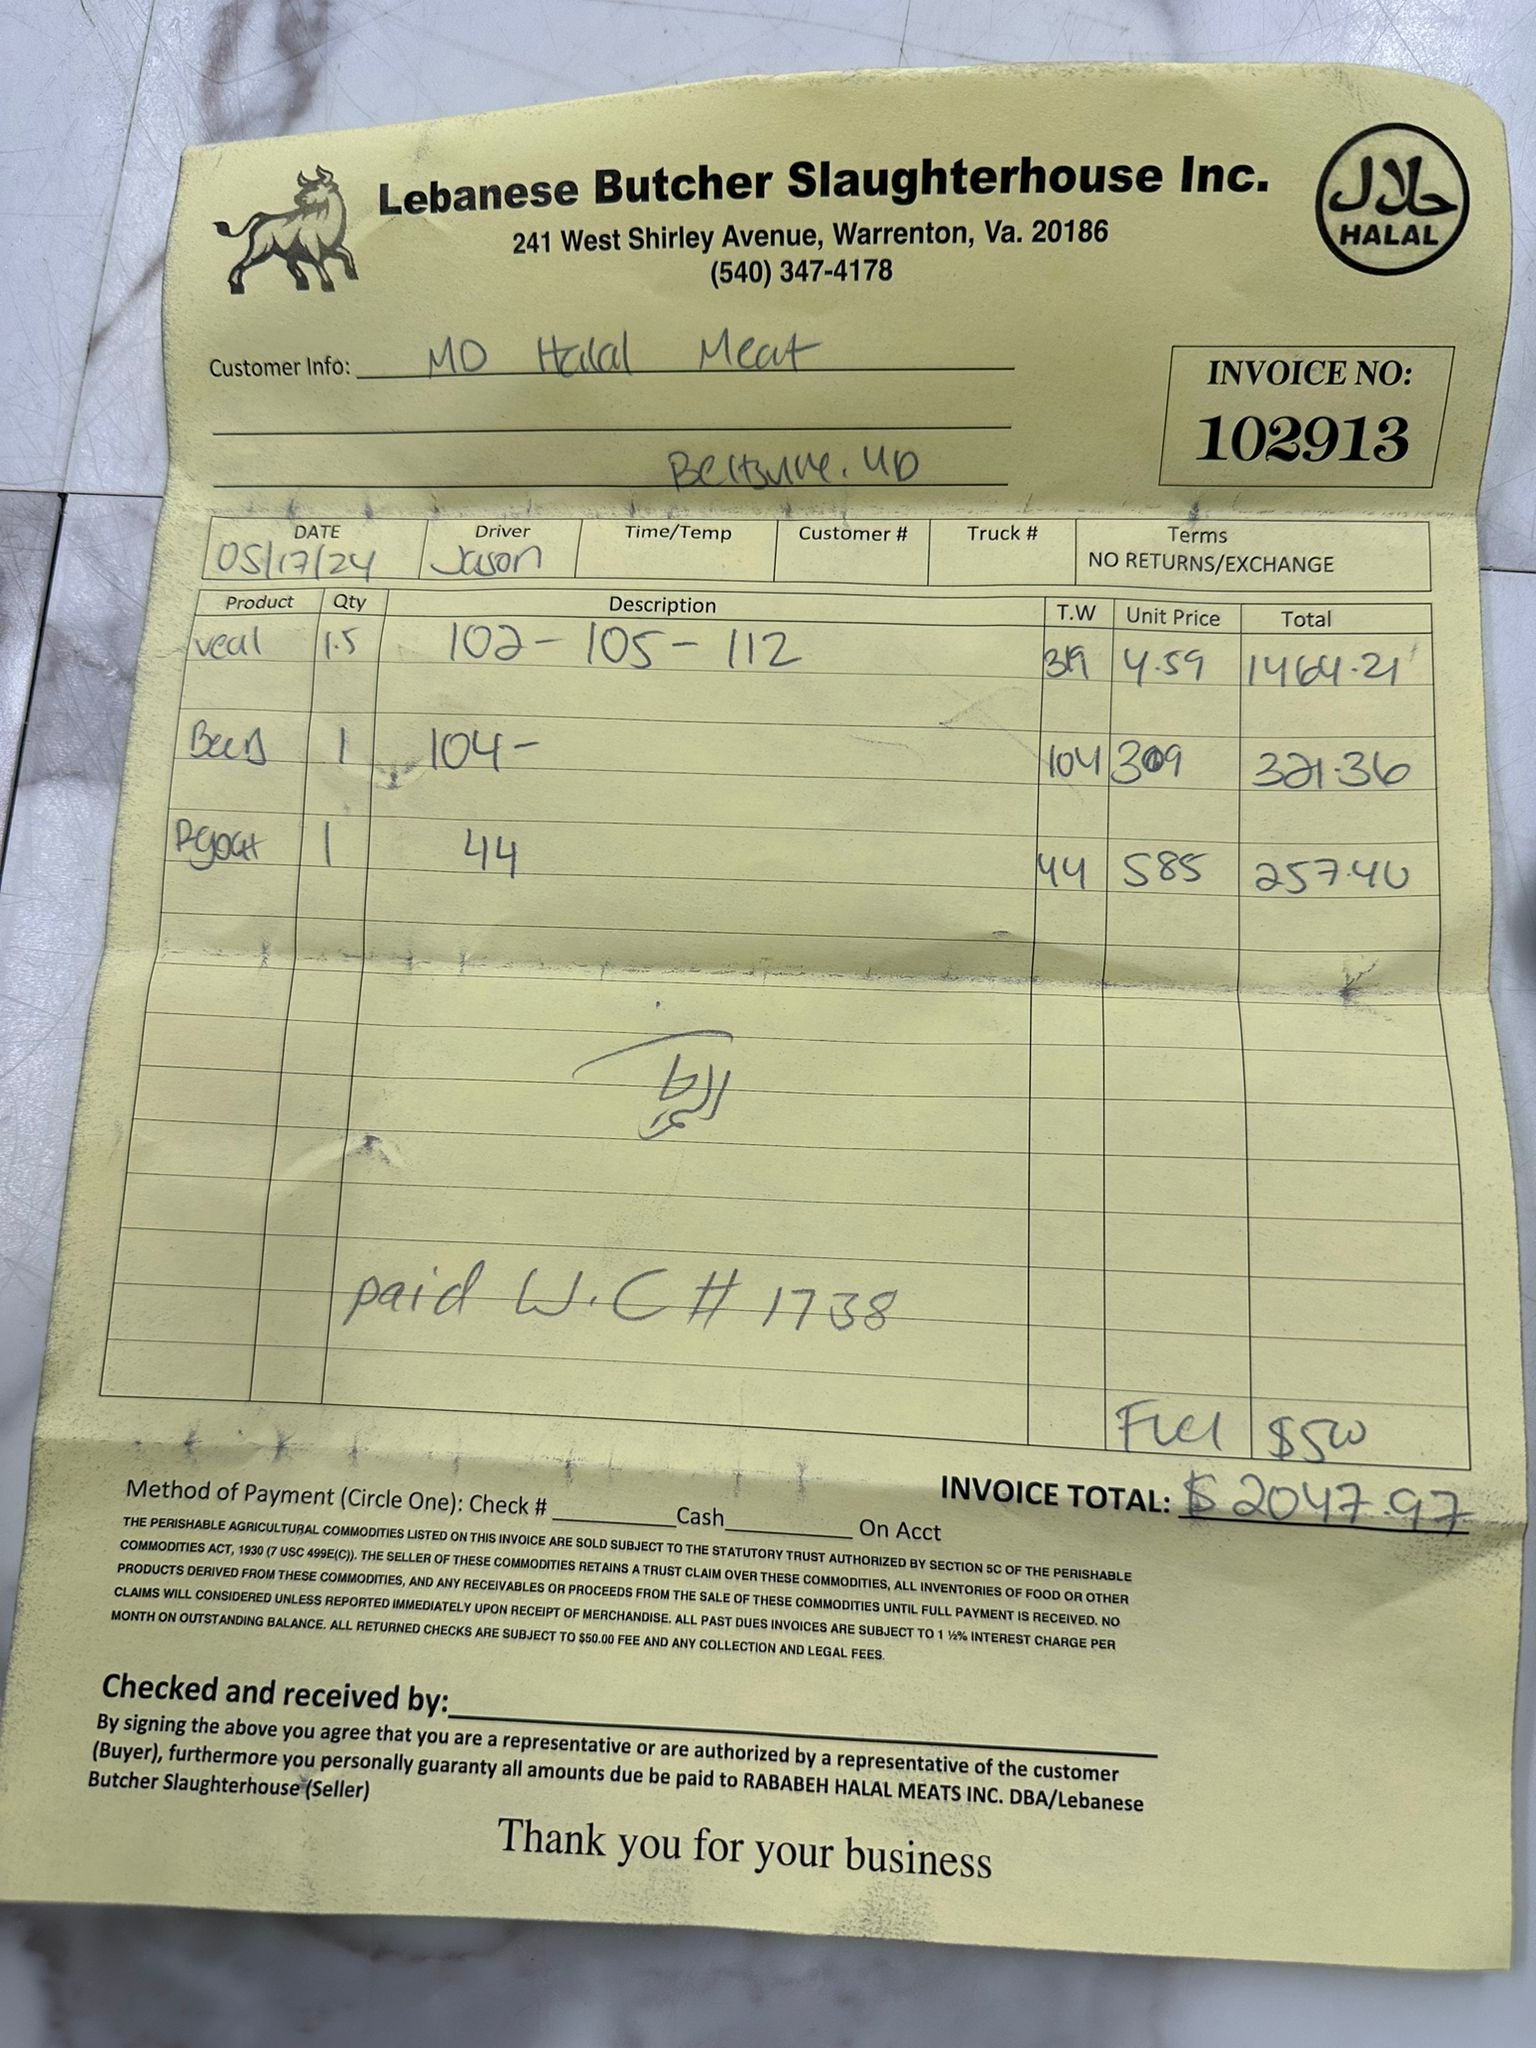 Lebanese Butcher Slaughterhouse Inc.
241 West Shirley Avenue, Warrenton, Va. 20186
(540) 347-4178
حلال
HALAL
Customer Info: MD Halal Meat
INVOICE NO:
102913
Beltsville. MD
DATE Driver Time/Temp Customer # Truck # Terms
05/17/24 Jason NO RETURNS/EXCHANGE
Product Qty Description T.W Unit Price Total
veal 1.5 102- 105- 112 319 4.59 1464.21
1 104- 104 309 321.36
1 44 44 585 257.40
paid W.C # 1738
Fuel $500
INVOICE TOTAL: $ 2047.97
Method of Payment (Circle One): Check # Cash On Acct
THE PERISHABLE AGRICULTURAL COMMODITIES LISTED ON THIS INVOICE ARE SOLD SUBJECT TO THE STATUTORY TRUST AUTHORIZED BY SECTION 5C OF THE PERISHABLE
COMMODITIES ACT, 1930 (7 USC 499E(C)). THE SELLER OF THESE COMMODITIES RETAINS A TRUST CLAIM OVER THESE COMMODITIES, ALL INVENTORIES OF FOOD OR OTHER
PRODUCTS DERIVED FROM THESE COMMODITIES, AND ANY RECEIVABLES OR PROCEEDS FROM THE SALE OF THESE COMMODITIES UNTIL FULL PAYMENT IS RECEIVED. NO
CLAIMS WILL CONSIDERED UNLESS REPORTED IMMEDIATELY UPON RECEIPT OF MERCHANDISE. ALL PAST DUES INVOICES ARE SUBJECT TO 1 ½% INTEREST CHARGE PER
MONTH ON OUTSTANDING BALANCE. ALL RETURNED CHECKS ARE SUBJECT TO $50.00 FEE AND ANY COLLECTION AND LEGAL FEES.
Checked and received by:
By signing the above you agree that you are a representative or are authorized by a representative of the customer
(Buyer), furthermore you personally guaranty all amounts due be paid to RABABEH HALAL MEATS INC. DBA/Lebanese
Butcher Slaughterhouse (Seller)
Thank you for your business